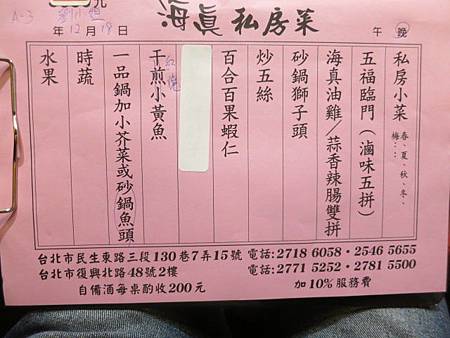 海真私房菜
A-3
年12月19日
午 晚
私房小菜 春、夏、秋、冬、梅⋯⋯
五福臨門（滷味五拼）
海真油雞／蒜香辣腸雙拼
砂鍋獅子頭
炒五絲
百合百果蝦仁
干煎小黃魚
紅燒
一品鍋加小芥菜或砂鍋魚頭
時蔬
水果
台北市民生東路三段130巷7弄15號 電話:2718 6058・2546 5655
台北市復興北路48號2樓 電話:2771 5252・2781 5500
自備酒每桌酌收200元 加10%服務費